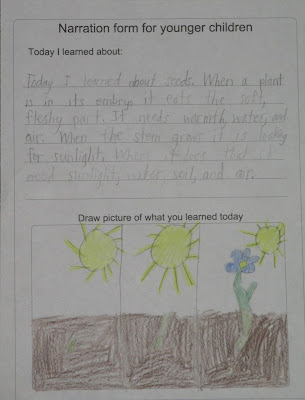 Narration form for younger children
Today I learned about:
Today I learned about seeds. When a plant
is in its embryo it eats the soft,
fleshy part. It needs warmth, water, and
air. When the stem grows it is looking
for sunlight. When it has that it
need sunlight, water, soil, and air.
Draw picture of what you learned today